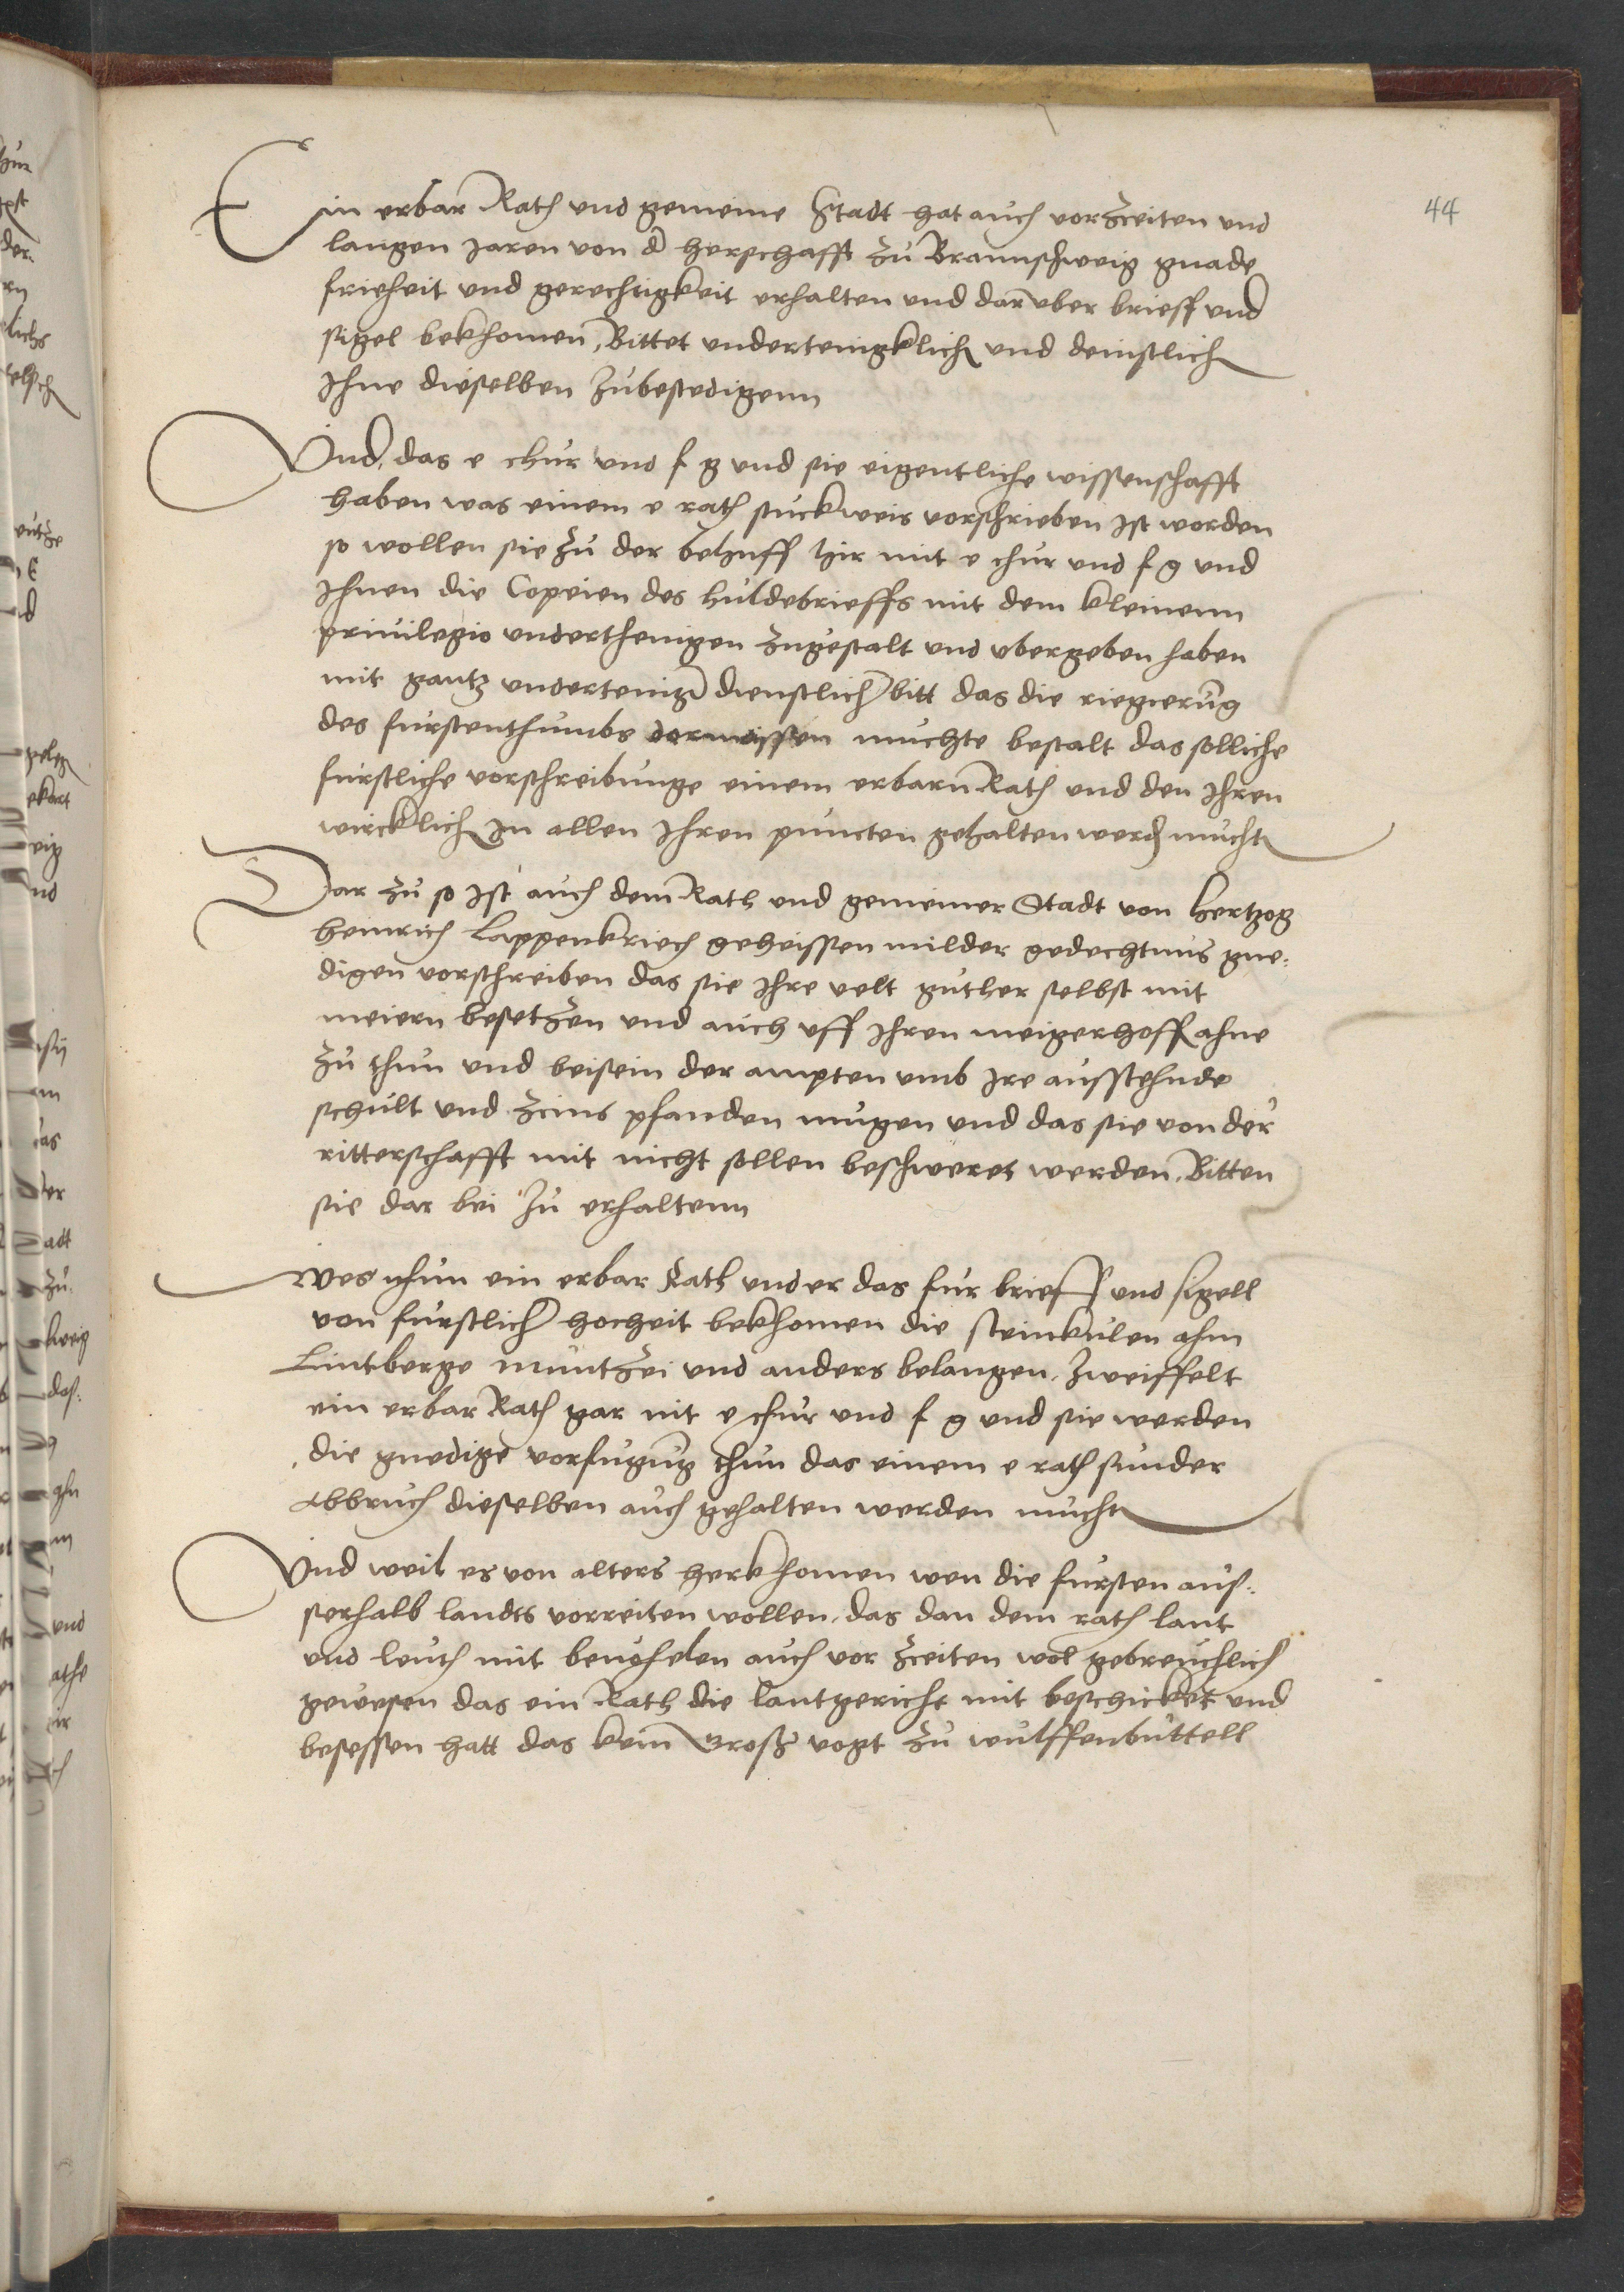 44
Ein erbar Rath und gemeine Stadt hat auch vorzceiten und
langen Jaren von d herschafft zu Braunschweig gnade
friheit und gerechtigkeit erhalten und daruber brieff und
sigel bekhomen, Bittet undertenigklich und deinstlich
Ihne dieselben zubestedigenn
Und, das e chur und f g und sie eigentliche wissenschafft
haben was einem e rath stuckweis vorschrieben ist worden
so wollen sie zu der behuff hir mit e chur und f g und
Ihnen die Copeien des huldebrieffs mit dem kleinenn
priuilegio underthenigen zugestalt und ubergeben haben
mit gantz undertenig dienstlich bitt das die riegierung
des furstenthumbs dermassen muchte bestalt das solliche
furstliche vorschreibunge einem erbarn Rath und den Ihren
wircklich In allen Ihren puncten gehalten werd mucht
Dar zu so ist auch dem Rath und gemeiner Stadt von hertzog
heinrich Lappenkriech geheissen milder gedechtnus gne:
digen vorschreiben das sie Ihre velt guther selbst mit
meiern besetzen und auch uff Ihren meigerhoff ahne
zu thun und beisein der ampten umb Ire ausstehnde
schult und zcins pfanden mugen und das sie von der
ritterschafft mit nicht sollen beschweret werden, Bitten
sie dar bei zu erhaltenn
Wes nhun ein erbar Rath under das fur brieff und sigell
von furstlich hocheit bekhomen die steinkulen ahm
Lintberge muntzei und anders belangen, Zweiffelt
ein erbar Rath gar nit e chur und f g und sie werden
die gnedige vorfugung thun das einem e rath sunder
Abbruch dieselben auch gehalten werden mucht
Und weil es von alters herkhomen wen die fursten aus:
serhalb landts vorreiten wollen, das dan dem rath lant
und leuth mit beuohelen auch vor zceiten wol gebreuchlich
gewesen das ein Rath die lantgericht mit beschicket und
besessen hatt das kein Groß vogt zu wulffenbuttell